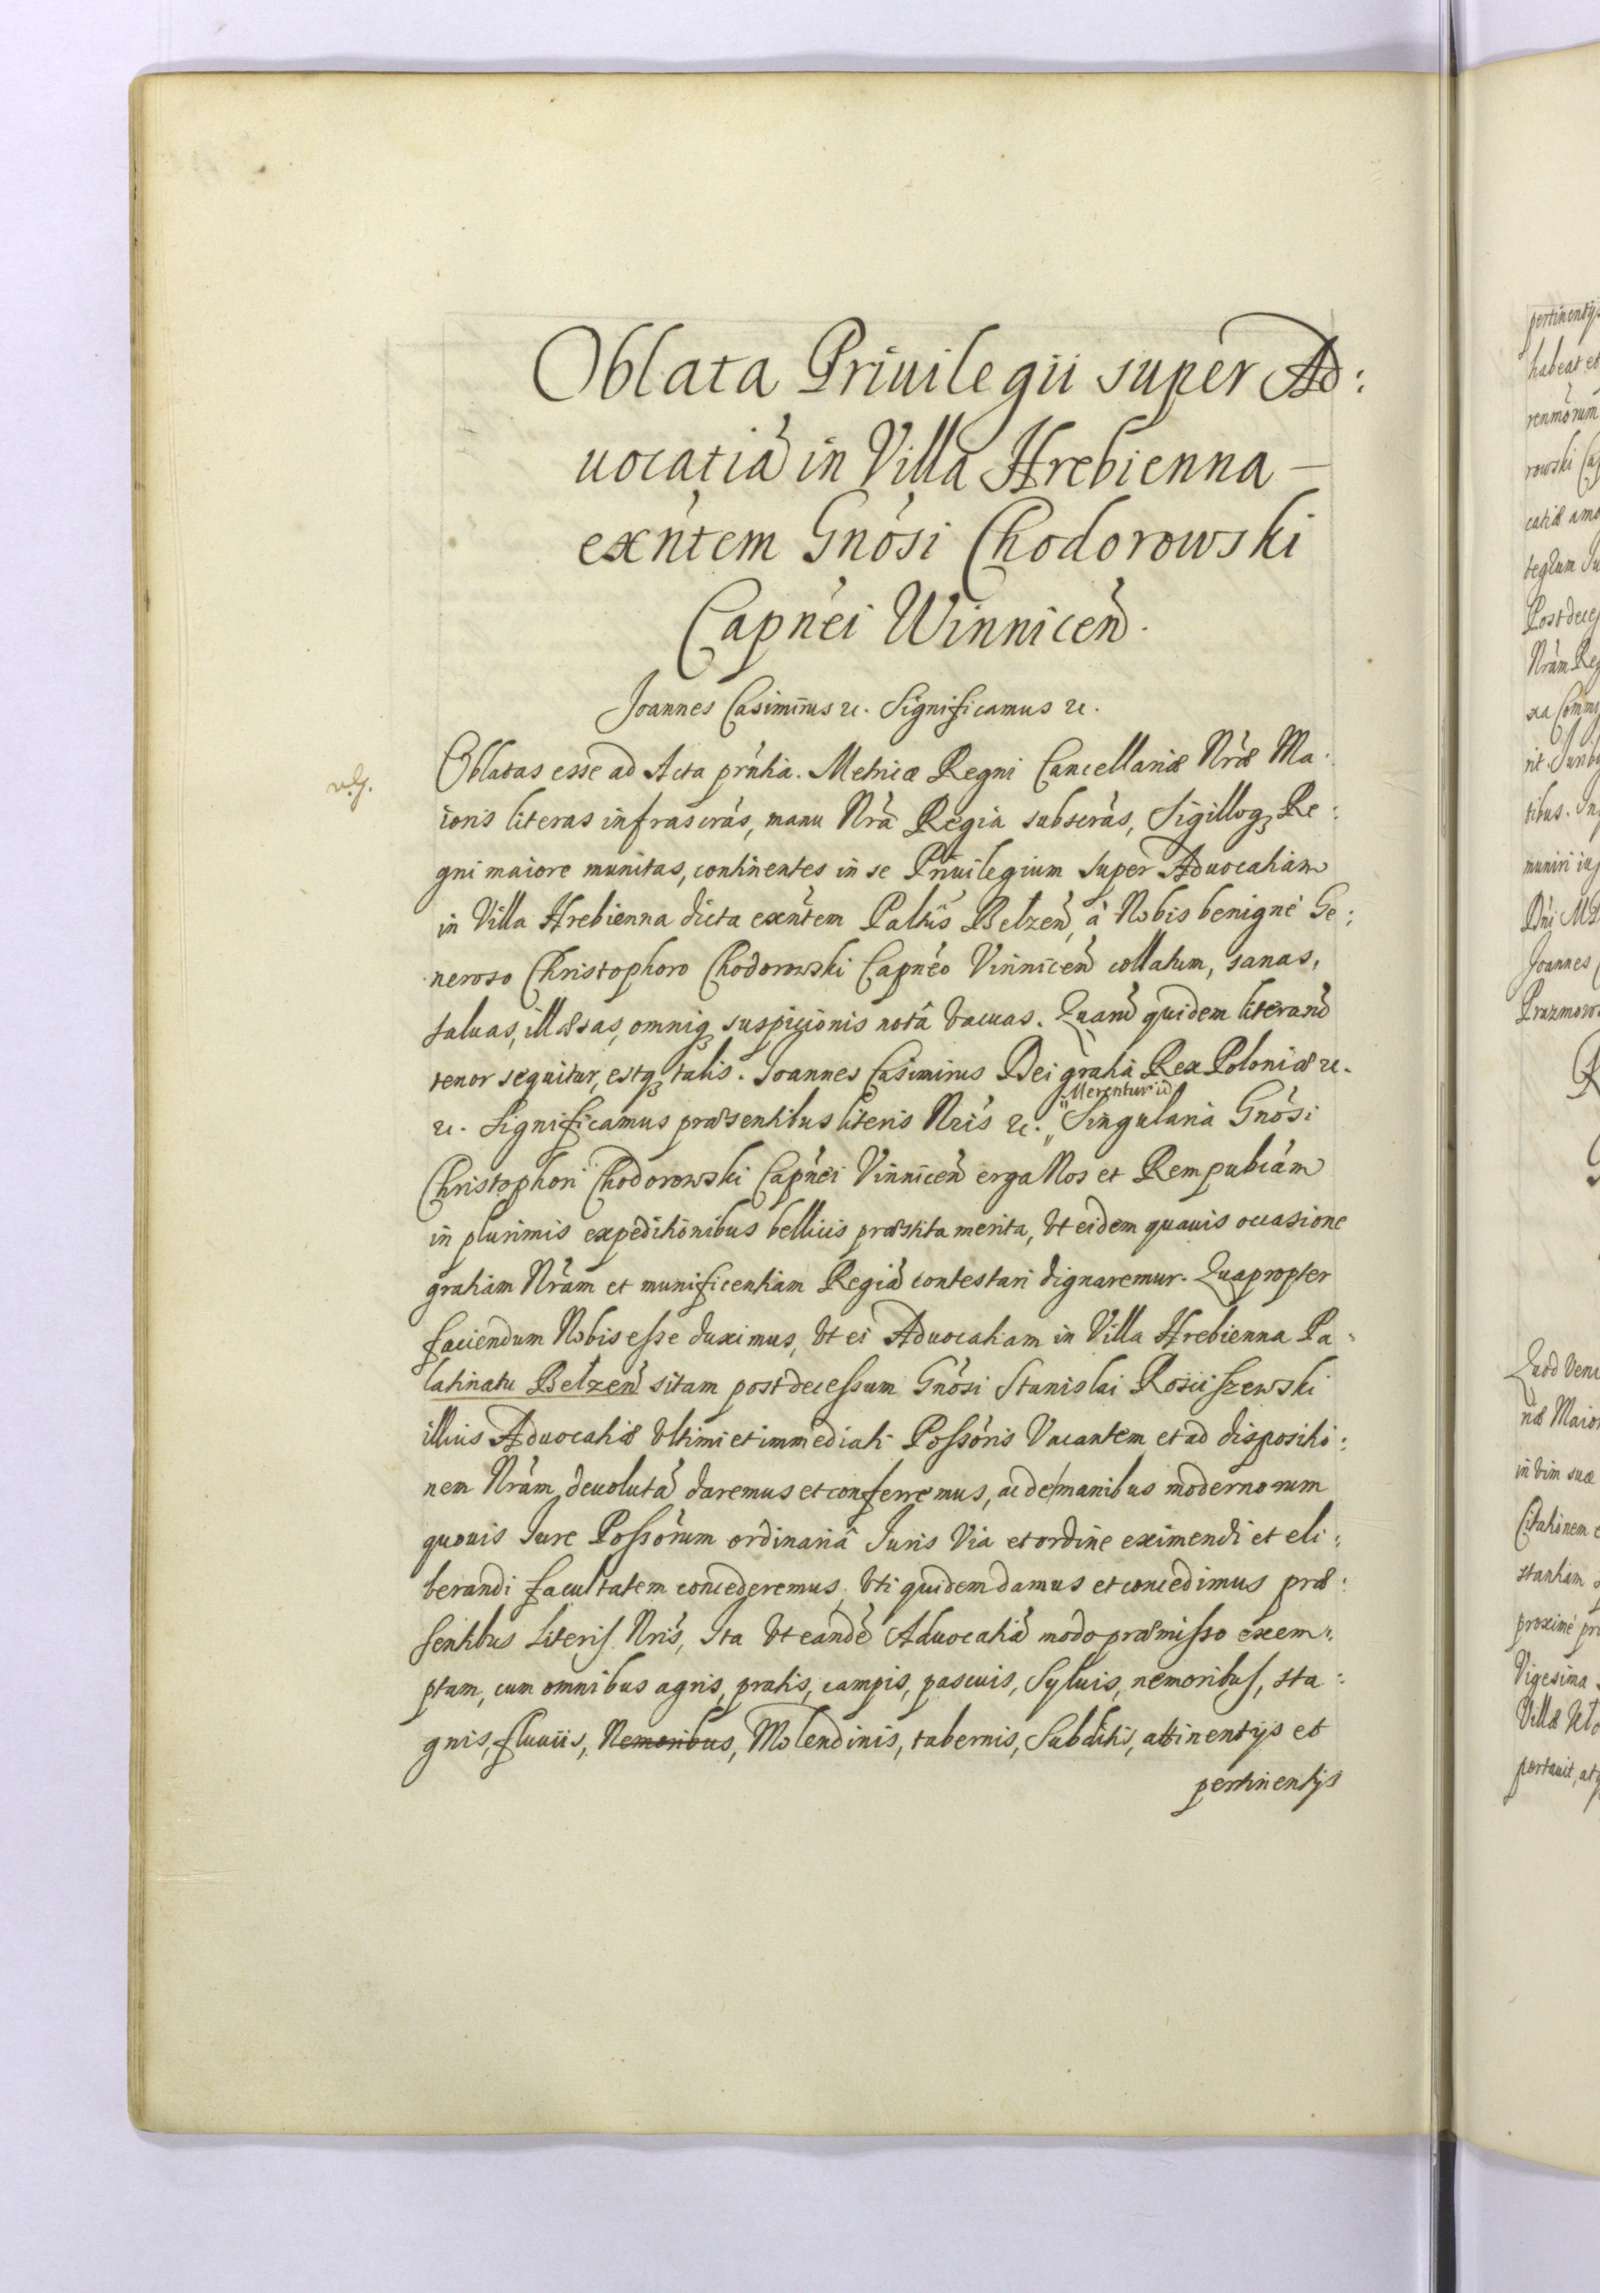 Oblata Priuilegii super Ad:
uocatiã in Villa Hrebienna –
exñtem Gnõsi Chodorowski
Capnei Winnicen̄.
Joannes Casimirus &c. Significamus &c.
Oblatas esse ad Acta prñtia. Metricæ Regni Cancellariæ Nræ Ma:
ioris literas infrascrãs, manu Nrã Regia subscrãs, Sigilloq3 Re:
gni maiore munitas, continentes in se Priuilegium super Aduocatiam
in Villa Hrebienna dicta exñtem Paltũs Bełzen̄, à Nobis benignè Ge:
neroso Christophoro Chodorowski Capnẽo Vinnicen̄ collatum, sanas,
saluas, illæsas, omniq3 suspicionis notâ vacuas. Quarũ quidem literarũ
tenor sequitur, estq3 talis. Joannes Casimirus Dei gratiâ Rex Poloniæ &c.
&c. Significamus præsentibus literis Nris &c. Merentur id Singularia Gnõsi
Christophori Chodorowski Capnẽi Vinnicen̄ erga Nos et Rempubcãm
in plurimis expeditionibus bellicis præstita merita, Vt eidem quauis occasione
gratiam Nrãm et munificentiam Regiã contestari dignaremur. Quapropter
faciendum Nobis esse duximus, Vt ei Aduocatiam in Villa Hrebienna Pa:
latinatu Bełzen̄ sitam post decessum Gnõsi Stanislai Rosciszewski
illius Aduocatiæ Vltimi et immediati Possõris Vacantem et ad dispositio:
nem Nrãm deuolutã daremus et conferremus, ac de manibus modernorum
quouis Jure Possõrum ordinariâ Juris Via et ordine eximendi et eli:
berandi facultatem concederemus, Vti quidem damus et concedimus præ:
sentibus Literis Nris, Ita Vt eandẽ Aduocatiã modo præmisso exem:
ptam, cum omnibus agris, pratis, campis, pascuis, Syluis, nemoribus, sta:
gnis, fluuiis, Nemoribus, Molendinis, tabernis, Subditis, attinentijs et
pertinentijs